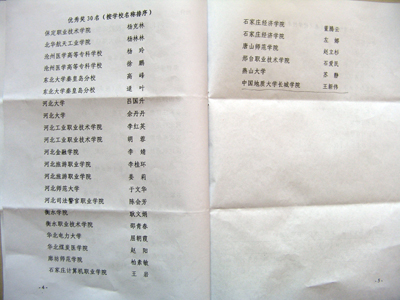 优秀奖30名（按学校名称排序）
保定职业技术学院 杨克林
北华航天工业学院 杨林林
沧州医学高等专科学校 杨玲
沧州医学高等专科学校 徐鹏
东北大学秦皇岛分校 高峰
东北大学秦皇岛分校 逯叶
河北大学 吕国升
河北大学 佘丹丹
河北工业职业技术学院 李红英
河北工业职业技术学院 胡蓉
河北金融学院 李婧
河北旅游职业学院 李桂环
河北旅游职业学院 姜莉
河北师范大学 于文华
河北司法警官职业学院 陈会芳
衡水学院 耿文娟
衡水职业技术学院 邵青春
华北电力大学 居朝霞
华北煤炭医学院 赵阳
廊坊师范学院 柏素敏
石家庄计算机职业学院 王岩
- 4 -
石家庄经济学院 董腾云
石家庄经济学院 左娜
唐山师范学院 赵立杉
邢台职业技术学院 石爱民
燕山大学 苏静
中国地质大学长城学院 王新伟
- 5 -